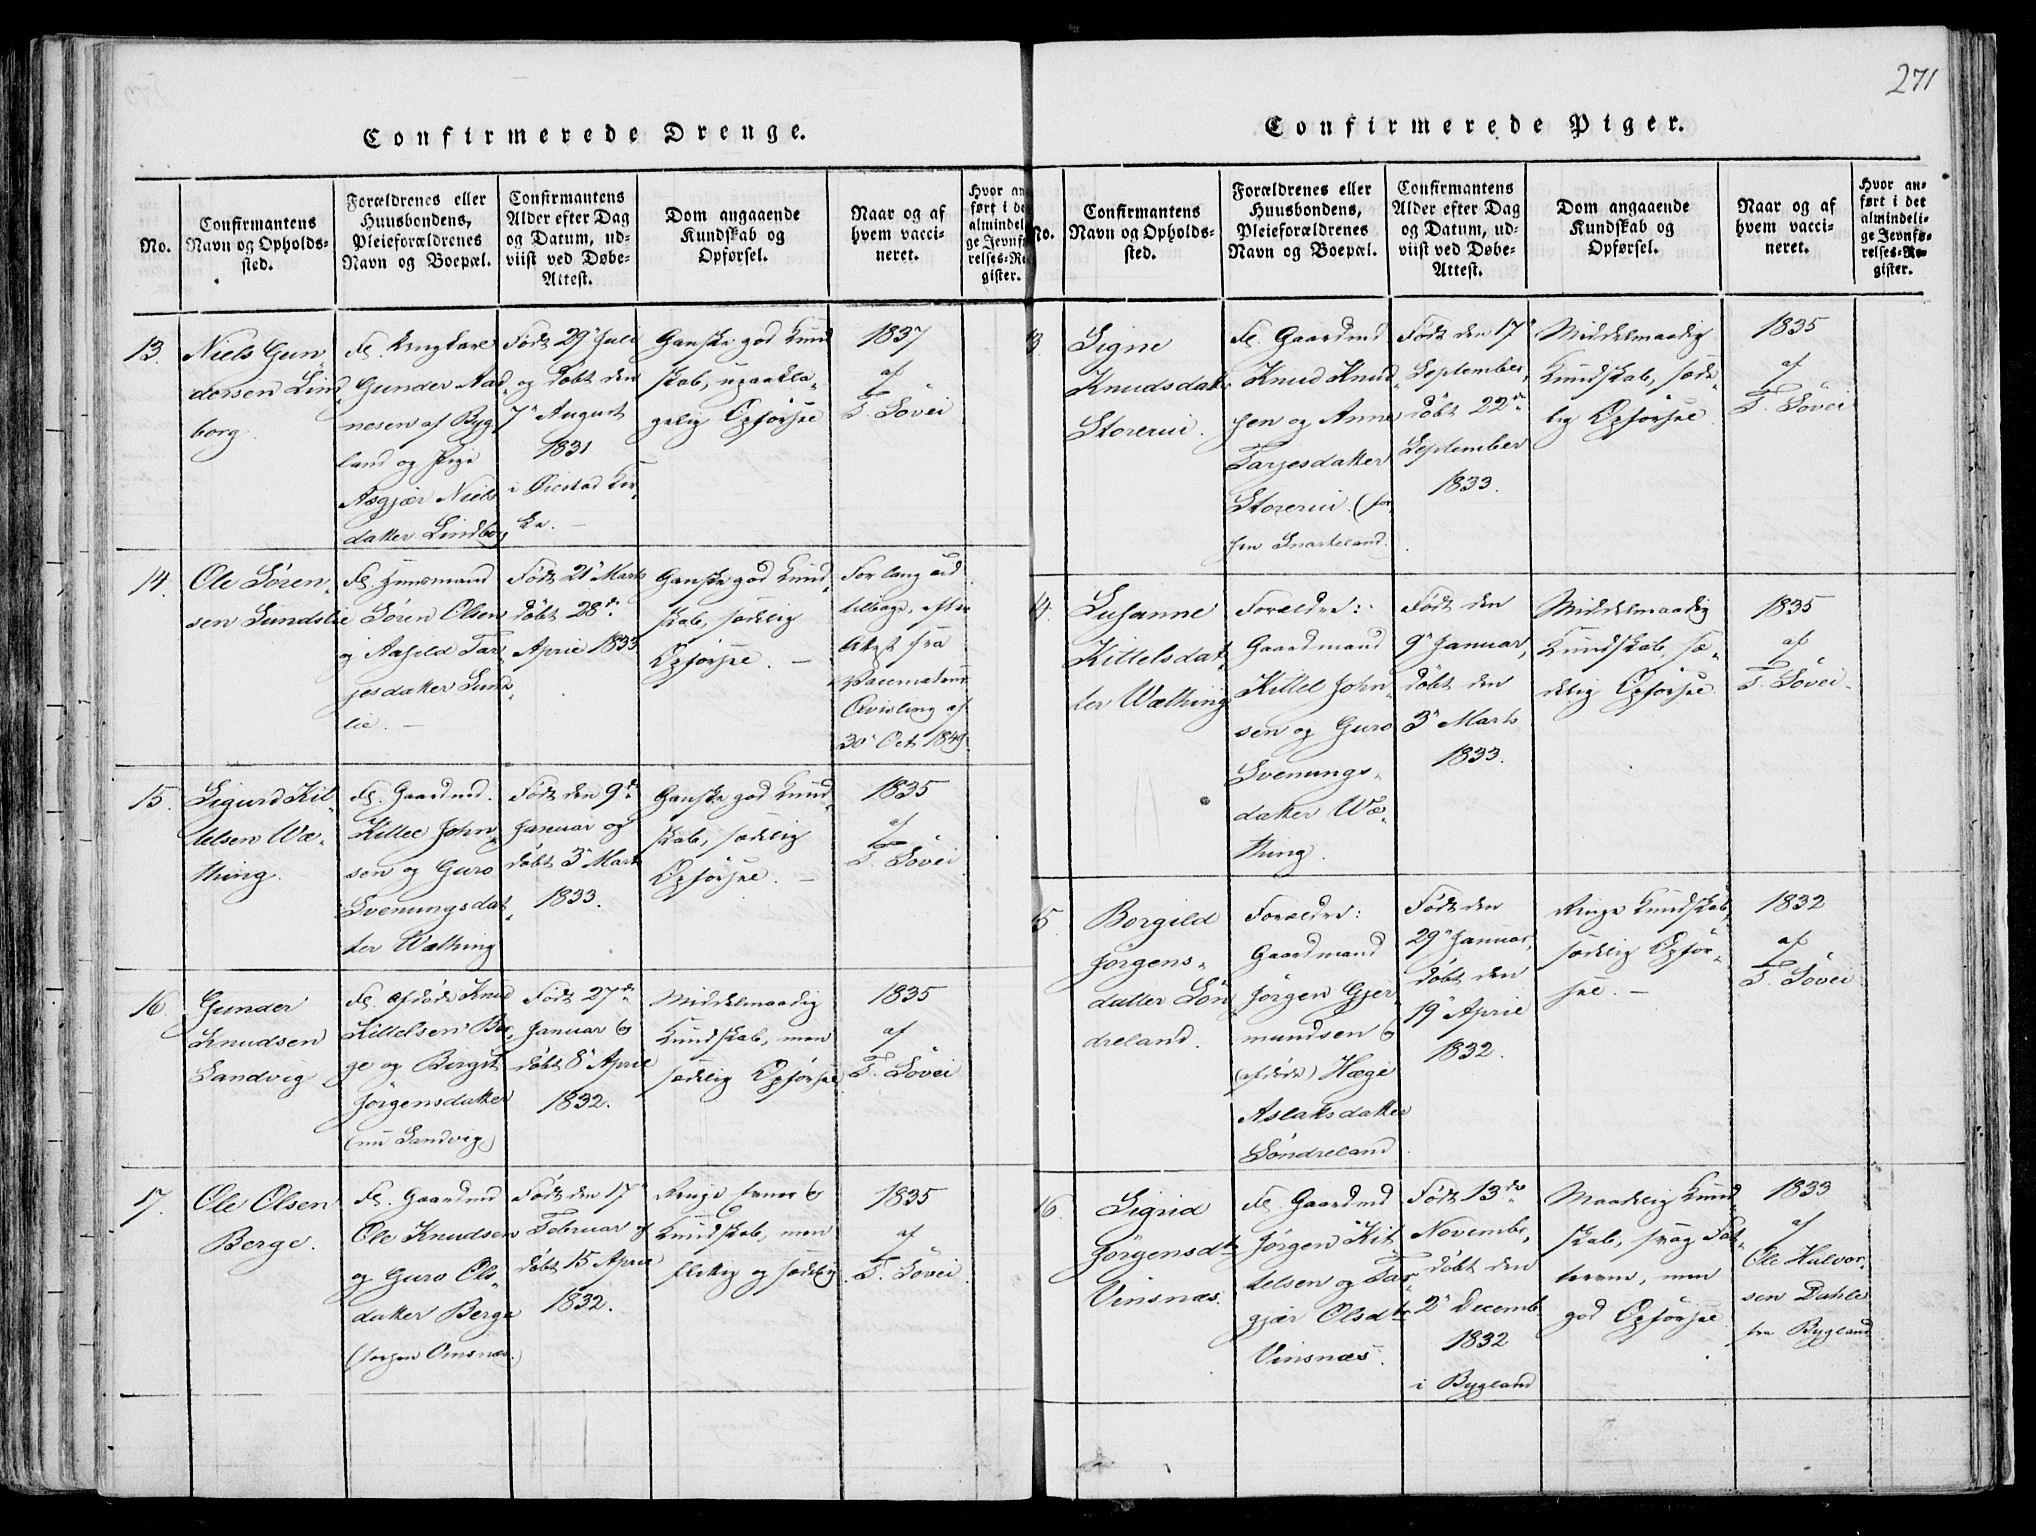 271
Confirmerede Drenge.
No.
Confirmantens
Navn og Opholds-
sted.
Forældrenes eller
Huusbondens,
Pleieforældrenes
Navn og Boepæl.
Confirmantens
Alder efter Dag
og Datum, ud-
viist ved Døbe-
Attest.
Dom angaaende
Kundskab og
Opførsel.
Naar og af
hvem vacci-
neret.
Hvor an
ført i de
almindel
ge Jevnfø
relses-Re
gister.
13.
Niels Gun
dersen Lind
borg.
Fs. Ungkarl
Gunder Aad
nesen af Byg
land og Pige
Asgjær Niels
datter Lindborg
Født 29 Juli
og døbt den
7 August
1831
i Øiestad Kir-
ke. -
Ganske god Kund
skab, upaakla-
gelig Opførsel
1837
af
T. Løvei
14.
Ole Søren-
sen Lundslie
Fs. Huusmand
Søren Olsen
og Aasild Tar-
jesdatter Lunds
lie. -
Født 21 Marts
døbt 28de
April 1833
Ganske god Kund-
skab, sædelig
Opførsel. -
For lang tid
tilbage, efter
Attest fra
Vaccinateur
Qvisling af
30 Oct 1849.
15.
Sigurd Kit-
telsen Wæ-
thing.
Fs. Gaardmd.
Kittel John-
sen og Guro
Svenungsdat-
ter Wæthing
Født den 9de
Januar og
døbt 3 Marts
1833.
Ganske god Kund-
skab, sædelig
Opførsel. -
1835
af
T. Løvei
16.
Gunder
Knudsen
Sandvig
Fs. afdøde Knud
Kittelsen Ber-
ge og Birgit
Jørgensdatter
(nu Sandvig)
Født 27de
Januar og
døbt 8 April
1832.
Middelmaadig
Kundskab, men
sædelig Opførsel
1835
af
T. Løvei
17.
Ole Olsen
Berge.
Fs. Gaardmd
Ole Knudsen
og Guro Ols-
datter Berge
Født den 17
Februar og
døbt 15 April
1832.
Ringe Evner og
Kundskab, men
flittig og sædelig
1835
af
T. Løvei.
Confirmerede Piger.
No.
Confirmantens
Navn og Opholds-
sted.
Forældrenes eller
Huusbondens,
Pleieforældrenes
Navn og Boepæl.
Confirmantens
Alder efter Dag
og Datum, ud-
viist ved Døbe-
Attest.
Dom angaaende
Kundskab og
Opførsel.
Naar og af
hvem vacci-
neret.
Hvor an-
ført i det
almindeli-
ge Jevnfø-
relses-Re-
gister.
3.
Signe
Knudsdatt
Storerui.
Fs. Gaardmd
Knud Knud
sen og Anne
Tarjesdatter
Storerui. (for
Født den 17
September,
døbt 22de
September
1833.
Middelmaadig
Kundskab, sæde-
lig Opførsel.
1835
af
T. Løvei
4.
Susanne
Kittelsdat-
ter Wæthing
Forældre:
Gaardmand
Kittel John-
sen og Guro
Svenungs-
datter Wæ-
thing.
Født den
9 Januar,
døbt den
3 Marts
1833.
Middelmaadig
Kundskab, sæ-
delig Opførsel.
1835
af
T. Løvei.
5.
Borgild
Jørgens-
datter Søn
dreland.
Forældre:
Gaardmand
Jørgen Gjer
mundsen og
(afdøde) Hæge
Aslaksdatter
Søndreland
Født den
29 Januar,
døbt den
19 April
1832.
Ringe Kundskab,
sædelig Opfør-
sel. -
1832
af
T. Løvei
16.
Sigrid
Jørgensdtr
Vinsnæs.
Fs. Gaardmd
Jørgen Kit
telsen og Tar
gjær Olsdtr
Vinsnæs.
Født 13de
Novembr,
døbt den
2 Decemb
1832
i Bygland
Maadelig Kund-
skab, svag Fat-
teevne, men
god Opførsel
1833
af
Ole Halvor-
sen Dahle
fra Bygland